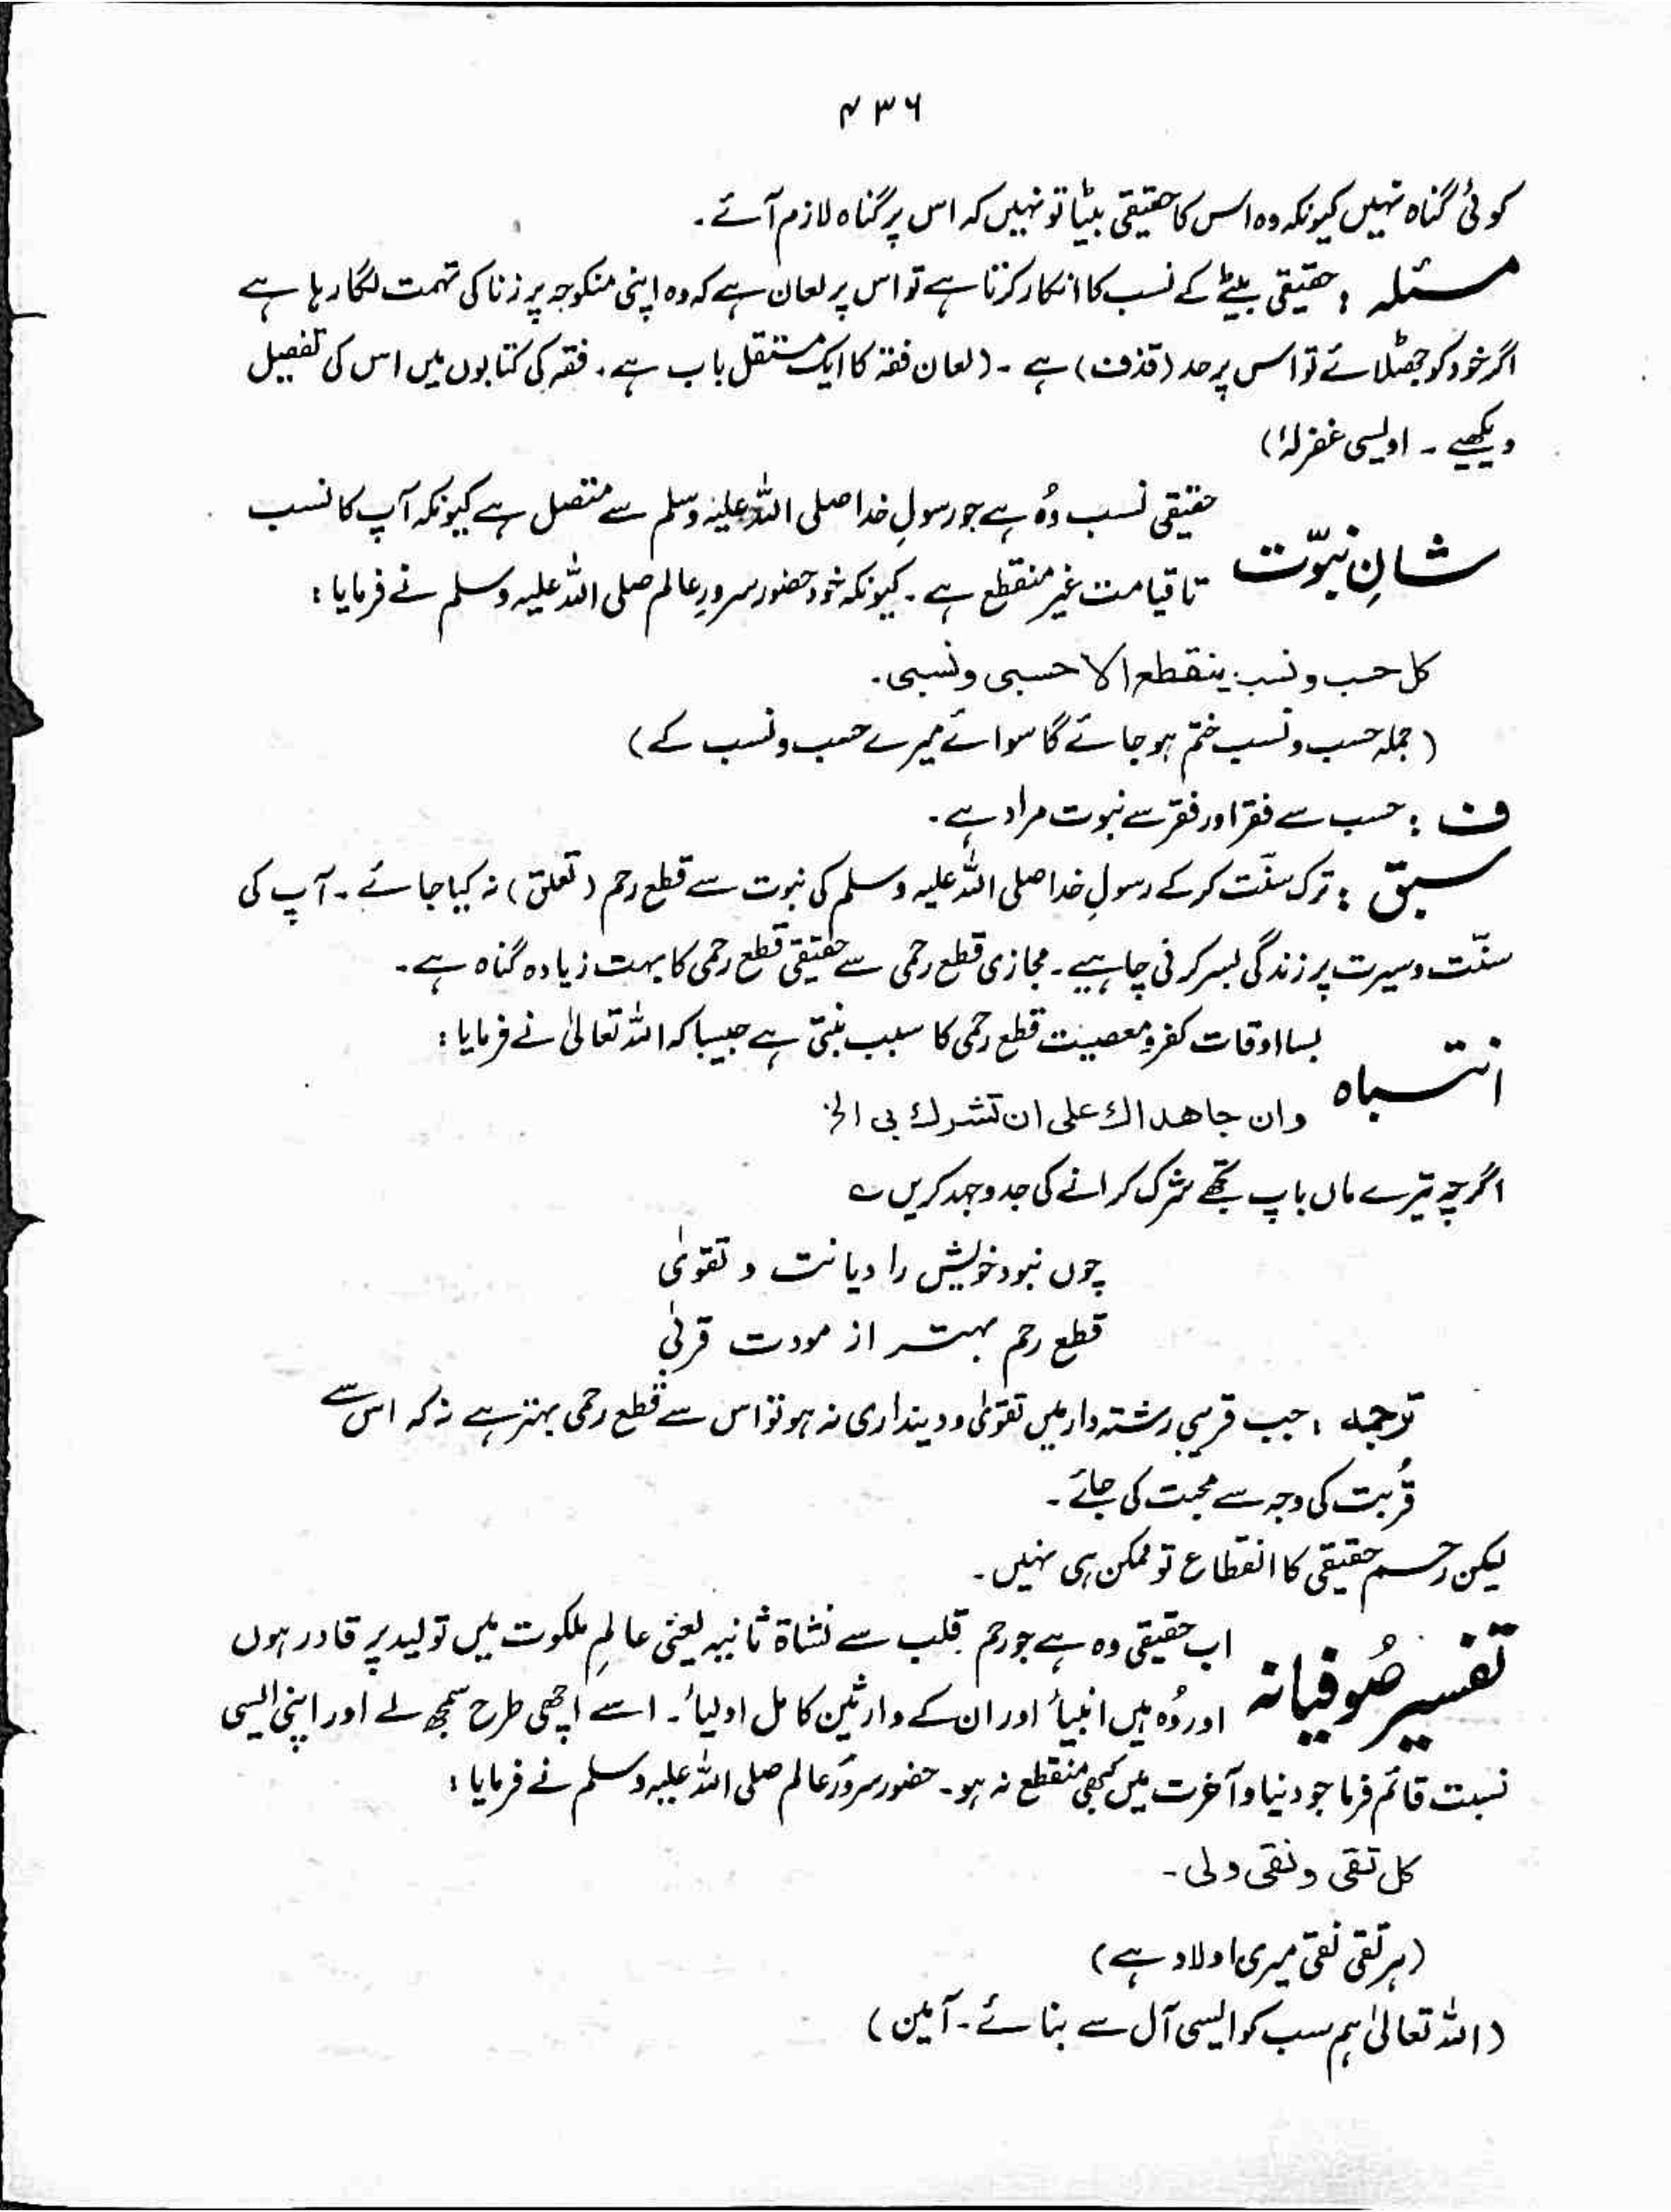 ۴۳۶
کوئی گناہ نہیں کیونکہ وہ اس کا حقیقی بیٹا تو نہیں کہ اس پر گناہ لازم آئے۔
مسئلہ : حقیقی بیٹے کے نسب کا انکار کرتا ہے تو اس پر لعان ہے کہ وہ اپنی منکوحہ پر زنا کی تہمت لگا رہا ہے
اگر خود کو جھٹلائے تو اس پر حد (قذف) ہے ۔ (لعان فقہ کا ایک مستقل باب ہے۔ فقہ کی کتابوں میں اس کی تفصیل
دیکھیے ۔ اویسی غفرلہٗ)
شانِ نبوّت
حقیقی نسب وُہ ہے جو رسولِ خدا صلی اللہ علیہ وسلم سے متصل ہے کیونکہ آپ کا نسب
تا قیامت غیر منقطع ہے ۔ کیونکہ خود حضور سرورِ عالم صلی اللہ علیہ وسلم نے فرمایا :
کل حسب و نسب ینقطع الا حسبی ونسبی۔
(جملہ حسب و نسب ختم ہو جائے گا سوائے میرے حسب و نسب کے)
ف : حسب سے فقر اور فقر سے نبوت مراد ہے۔
سبق : ترک سنّت کر کے رسولِ خدا صلی اللہ علیہ وسلم کی نبوت سے قطع رحم (تعلق) نہ کیا جائے ۔ آپ کی
سنّت و سیرت پر زندگی بسر کرنی چاہیے۔ مجازی قطع رحمی سے حقیقی قطع رحمی کا بہت زیادہ گناہ ہے۔
انتباہ
بسا اوقات کفر و معصیت قطع رحمی کا سبب بنتی ہے جیسا کہ اللہ تعالیٰ نے فرمایا :
وان جاھداك علی ان تشرك بی الخ
اگرچہ تیرے ماں باپ تجھے شرک کرانے کی جد و جہد کریں ؎
چوں نبود خویش را دیانت و تقویٰ
قطع رحم بہتر از مودت قربیٰ
ترجمہ : جب قریبی رشتہ دار میں تقویٰ و دینداری نہ ہو تو اس سے قطع رحمی بہتر ہے نہ کہ اس سے
قُربت کی وجہ سے محبت کی جائے ۔
لیکن رحم حقیقی کا انقطاع تو ممکن ہی نہیں ۔
تفسیر صُوفیانہ
اب حقیقی وہ ہے جو رحم قلب سے نشاۃ ثانیہ یعنی عالمِ ملکوت میں تولید پر قادر ہوں
اور وُہ ہیں انبیاؑ اور ان کے وارثین کامل اولیاؒ ۔ اسے اچھی طرح سمجھ لے اور اپنی ایسی
نسبت قائم فرما جو دنیا و آخرت میں کبھی منقطع نہ ہو ۔ حضور سرورِ عالم صلی اللہ علیہ وسلم نے فرمایا :
کل تقی ونقی ولی ۔
(ہر تقی نقی میری اولاد ہے)
(اللہ تعالیٰ ہم سب کو ایسی آل سے بنائے ۔ آمین)